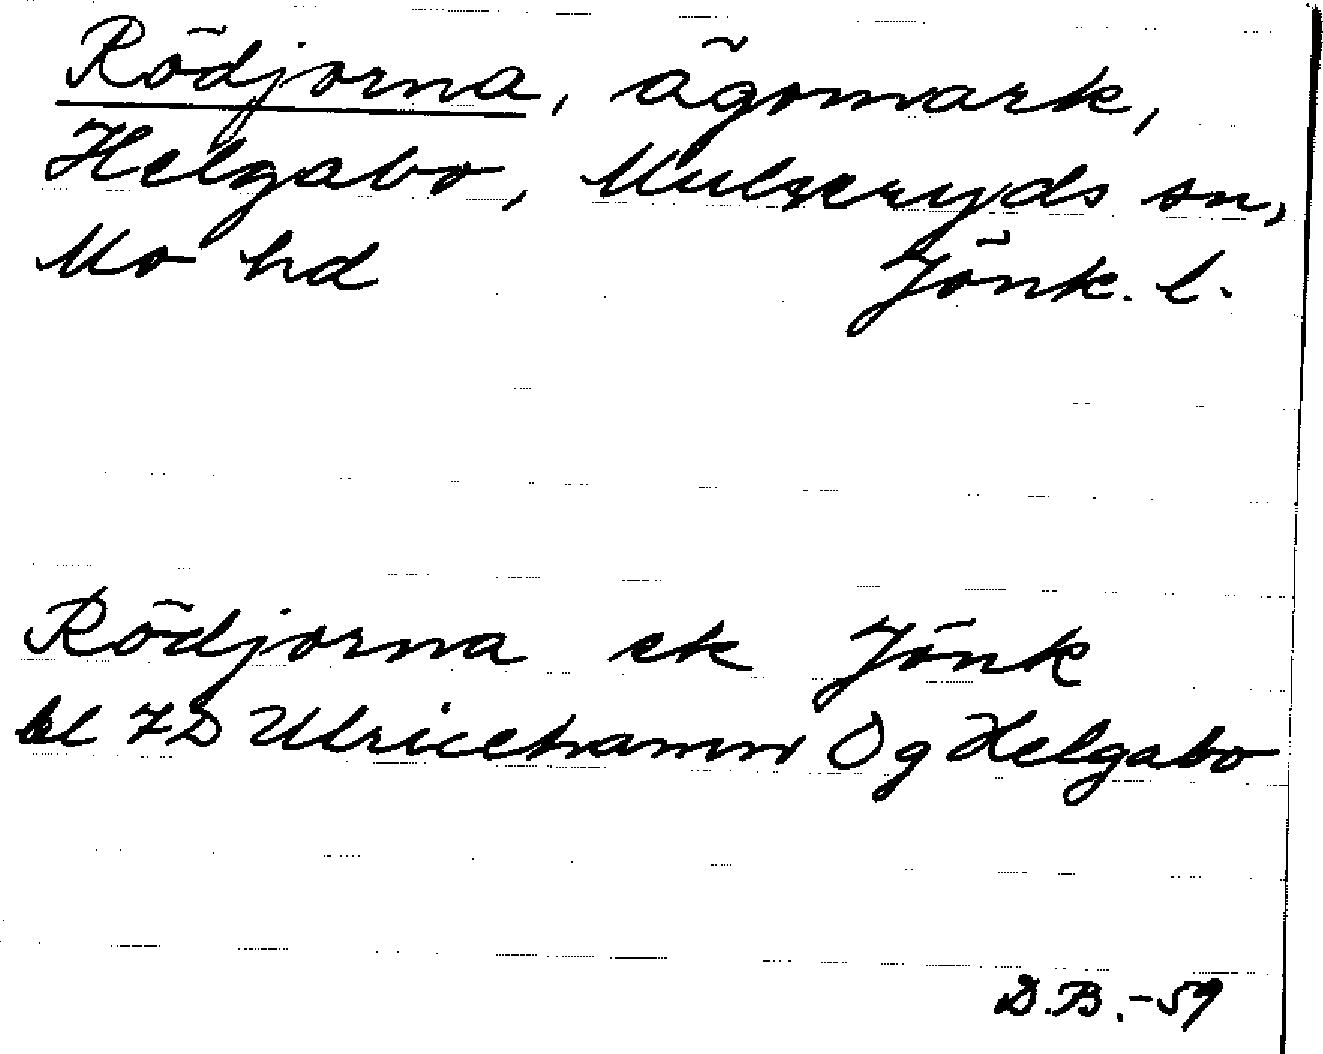 Rödjorna, ägomark,
Helgabo, Mulseryds sn,
Mo hd Jönk. l.
Rödjorna ek Jönk
bl 7D Ulricehamn Ög Helgabo
D.B.-59